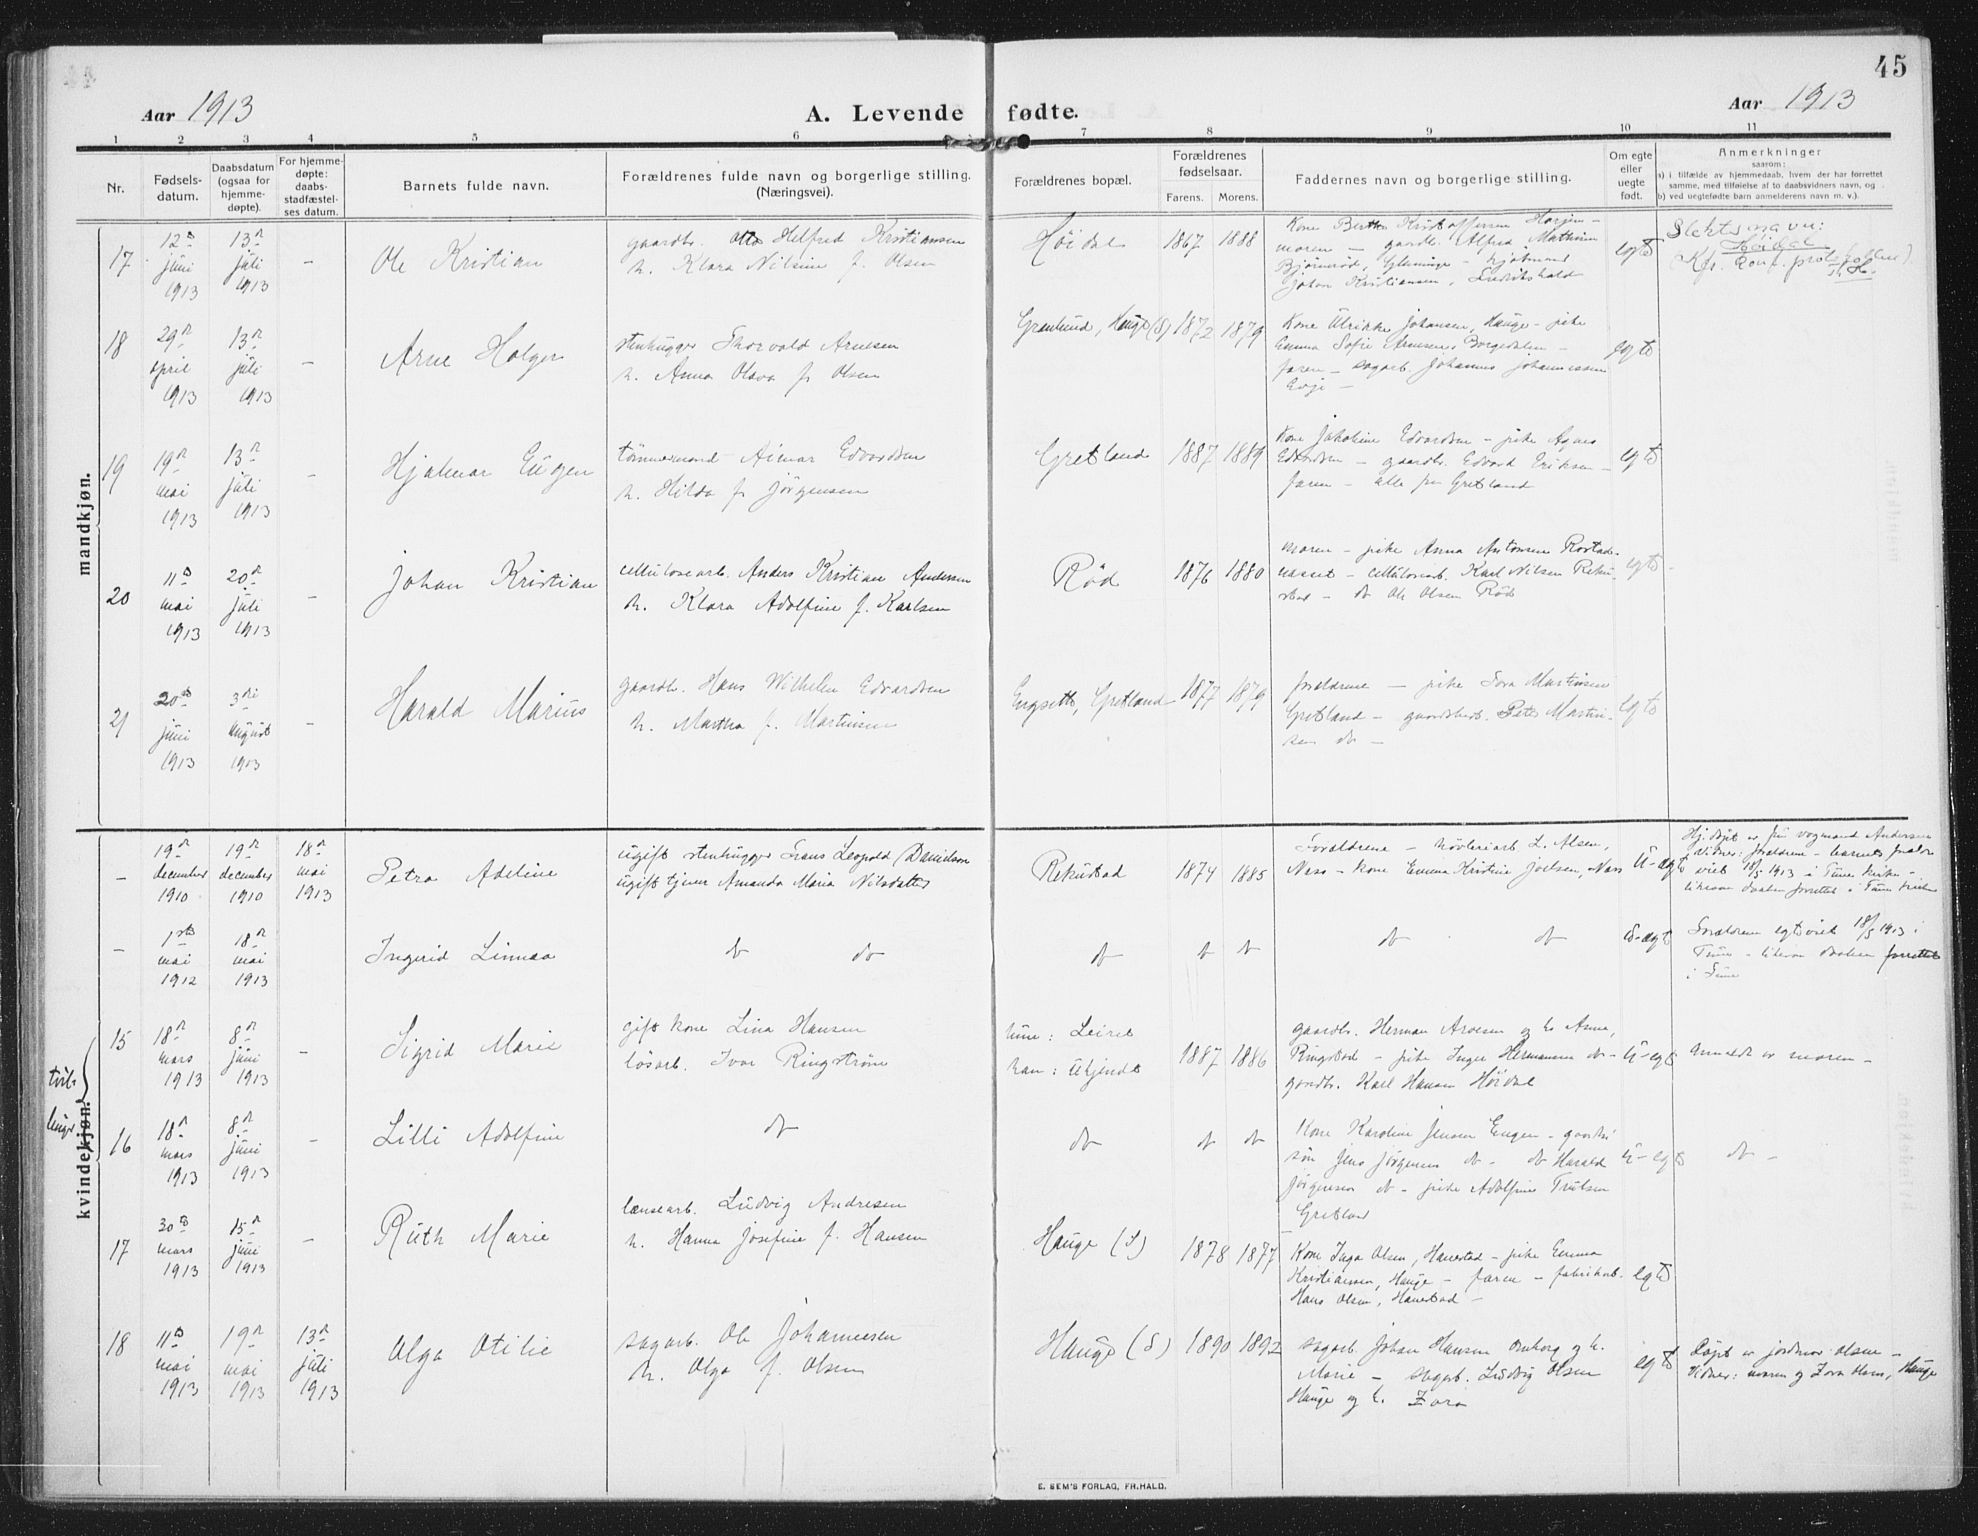 45
Aar 1913
A. Levende fødte.
Aar 1913
1 2 3 4 5 6 7 8 9 10 11
Nr.
Fødsels-
datum.
Daabsdatum
(ogsaa for
hjemme-
døpte).
For hjemme-
døpte:
daabs-
stadfæstel-
ses datum.
Barnets fulde navn.
Forældrenes fulde navn og borgerlige stilling.
(Næringsvei).
Forældrenes bopæl.
Forældrenes
fødselsaar.
Farens. Morens.
Faddernes navn og borgerlige stilling.
Om egte
eller
uegte
født.
Anmerkninger
saasom:
a) i tilfælde av hjemmedaab, hvem der har forrettet
samme, med tilføielse af to daabsvidners navn, og
b) ved uegtefødte barn anmelderens navn m. v.).
mandkjøn.
17
12te
juni
1913
13de
juli
1913
–
Ole Kristian
gaardbr. Otto Helfred Kristiansen
h. Klara Nilsine f. Olsen
Höidal
1867 1888
Kone Berthe Kristoffersen
moren – gaardb. Alfred Mathisen
Bjørnerød, Glemminge –
Johan Kristiansen, Fredrikshald
egte
Slektsnavn:
Høidal
(Kfr. Konf. protokollen)
18
29de
april
1913
13de
juli
1913
–
Arne Holger
stenhugger Thorvald Arnesen
h. Anna Olava f. Olsen
Grønlund, Hauge (S)
1872 1879
Kone Ulrikke Johansen, Hauge – pike
Emma Sofie Arnesen, Borgedalen –
faren – sagarb. Johannes Johannessen
egte
19
19de
mai
1913
13de
juli
1913
–
Hjalmar Eugen
tømmermand Aimar Edvardsen
h. Hilda f. Jörgensen
Gretland
1887 1889
Kone Jakobine Edvardsen – pike Agnes
Edvardsen – gaardb. Edvard Eriksen –
faren – alle fra Gretland
egte
20
11te
mai
1913
20de
juli
1913
–
Johan Kristian
cellulosearb. Anders Kristian Andersen
h. Klara Adolfine f. Karlsen
Rød
1876 1880
moren – pike Anna Antonsen
– cellulosearb. Karl Nilsen Reku-
stad – do Ole Olsen Rød
egte
21
20de
juni
1913
3die
august
1913
–
Harald Marius
gaardb. Hans Wilhelm Edvardsen
h. Martha f. Martinsen
Engsette, Gretland
1877 1879
forældrene – pike Tora Martinsen
Gretland – Peter Martin-
sen do –
egte
kvindekjøn.
–
19de
december
1910
19de
december
1910
18de
mai
1913
Petra Adeline
ugift stenhugger Frans Leopold Danielson
ugift tjener Amanda Maria Nilsdatter
Rekustad
1874 1885
Forældrene – høvleriarb. L. Olsen,
Næss – kone Emma Kristine Joelsen, Næss
U-ægte
Hj. døpt av fru vognmand Andersen
vidner: forældrene – barnets forældre
viet 18/5 1913 i Tune kirke –
likesaa daaben forrettet i Tune kirke
–
1ste
mai
1912
18de
mai
1913
Ingerid Linnea
do do
do
do do
do do
U-ægte
Forældrene egteviet 18/5 1913 i
Tune – likesaa daaben forrettet
i Tune
tvil-
linger.
15
18de
mars
1913
8de
juni
1913
–
Sigrid Marie
gift kone Lina Hansen
løsarb. Ivar Ringstrøm
hun: Leiret
han: Ukjendt
1887 1886
gaardb. Herman Arvesen og h. Anna,
Ringstad – pike Inger Hermansen do –
gaardb. Karl Hansen Höidal
U-egte
Anmeldt av moren –
16
18de
mars
1913
8de
juni
1913
–
Lilli Adolfine
do
do
do do
Kone Karoline Jensen Engen –
søn Jens Jørgensen do – do Harald
Jørgensen do – pike Adolfine Trulsen
Gretland
U-egte
do –
17
30te
mars
1913
15de
juni
1913
–
Ruth Marie
lænsearb. Ludvig Andresen
h. Hanna Josefine f. Hansen
Hauge (S)
1878 1877
Kone Inga Olsen, Hanestad – pike Emma
Kristiansen, Hauge – faren – fabrikarb.
Hans Olsen, Hanestad –
egte
18
11te
mai
1913
19de
mai
1913
13de
juli
1913
Olga Otilie
sagarb. Ole Johannesen
h. Olga f. Olsen
Hauge (S)
1890 1892
sagarb. Johan Hansen og h.
Marie – sagarb. Ludvig Olsen
Hauge og h. Zara
egte
Døpt av jordmor Olsen –
Vidner: moren og Zara Hans, Hauge
E. SEM'S FORLAG, FR.HALD.